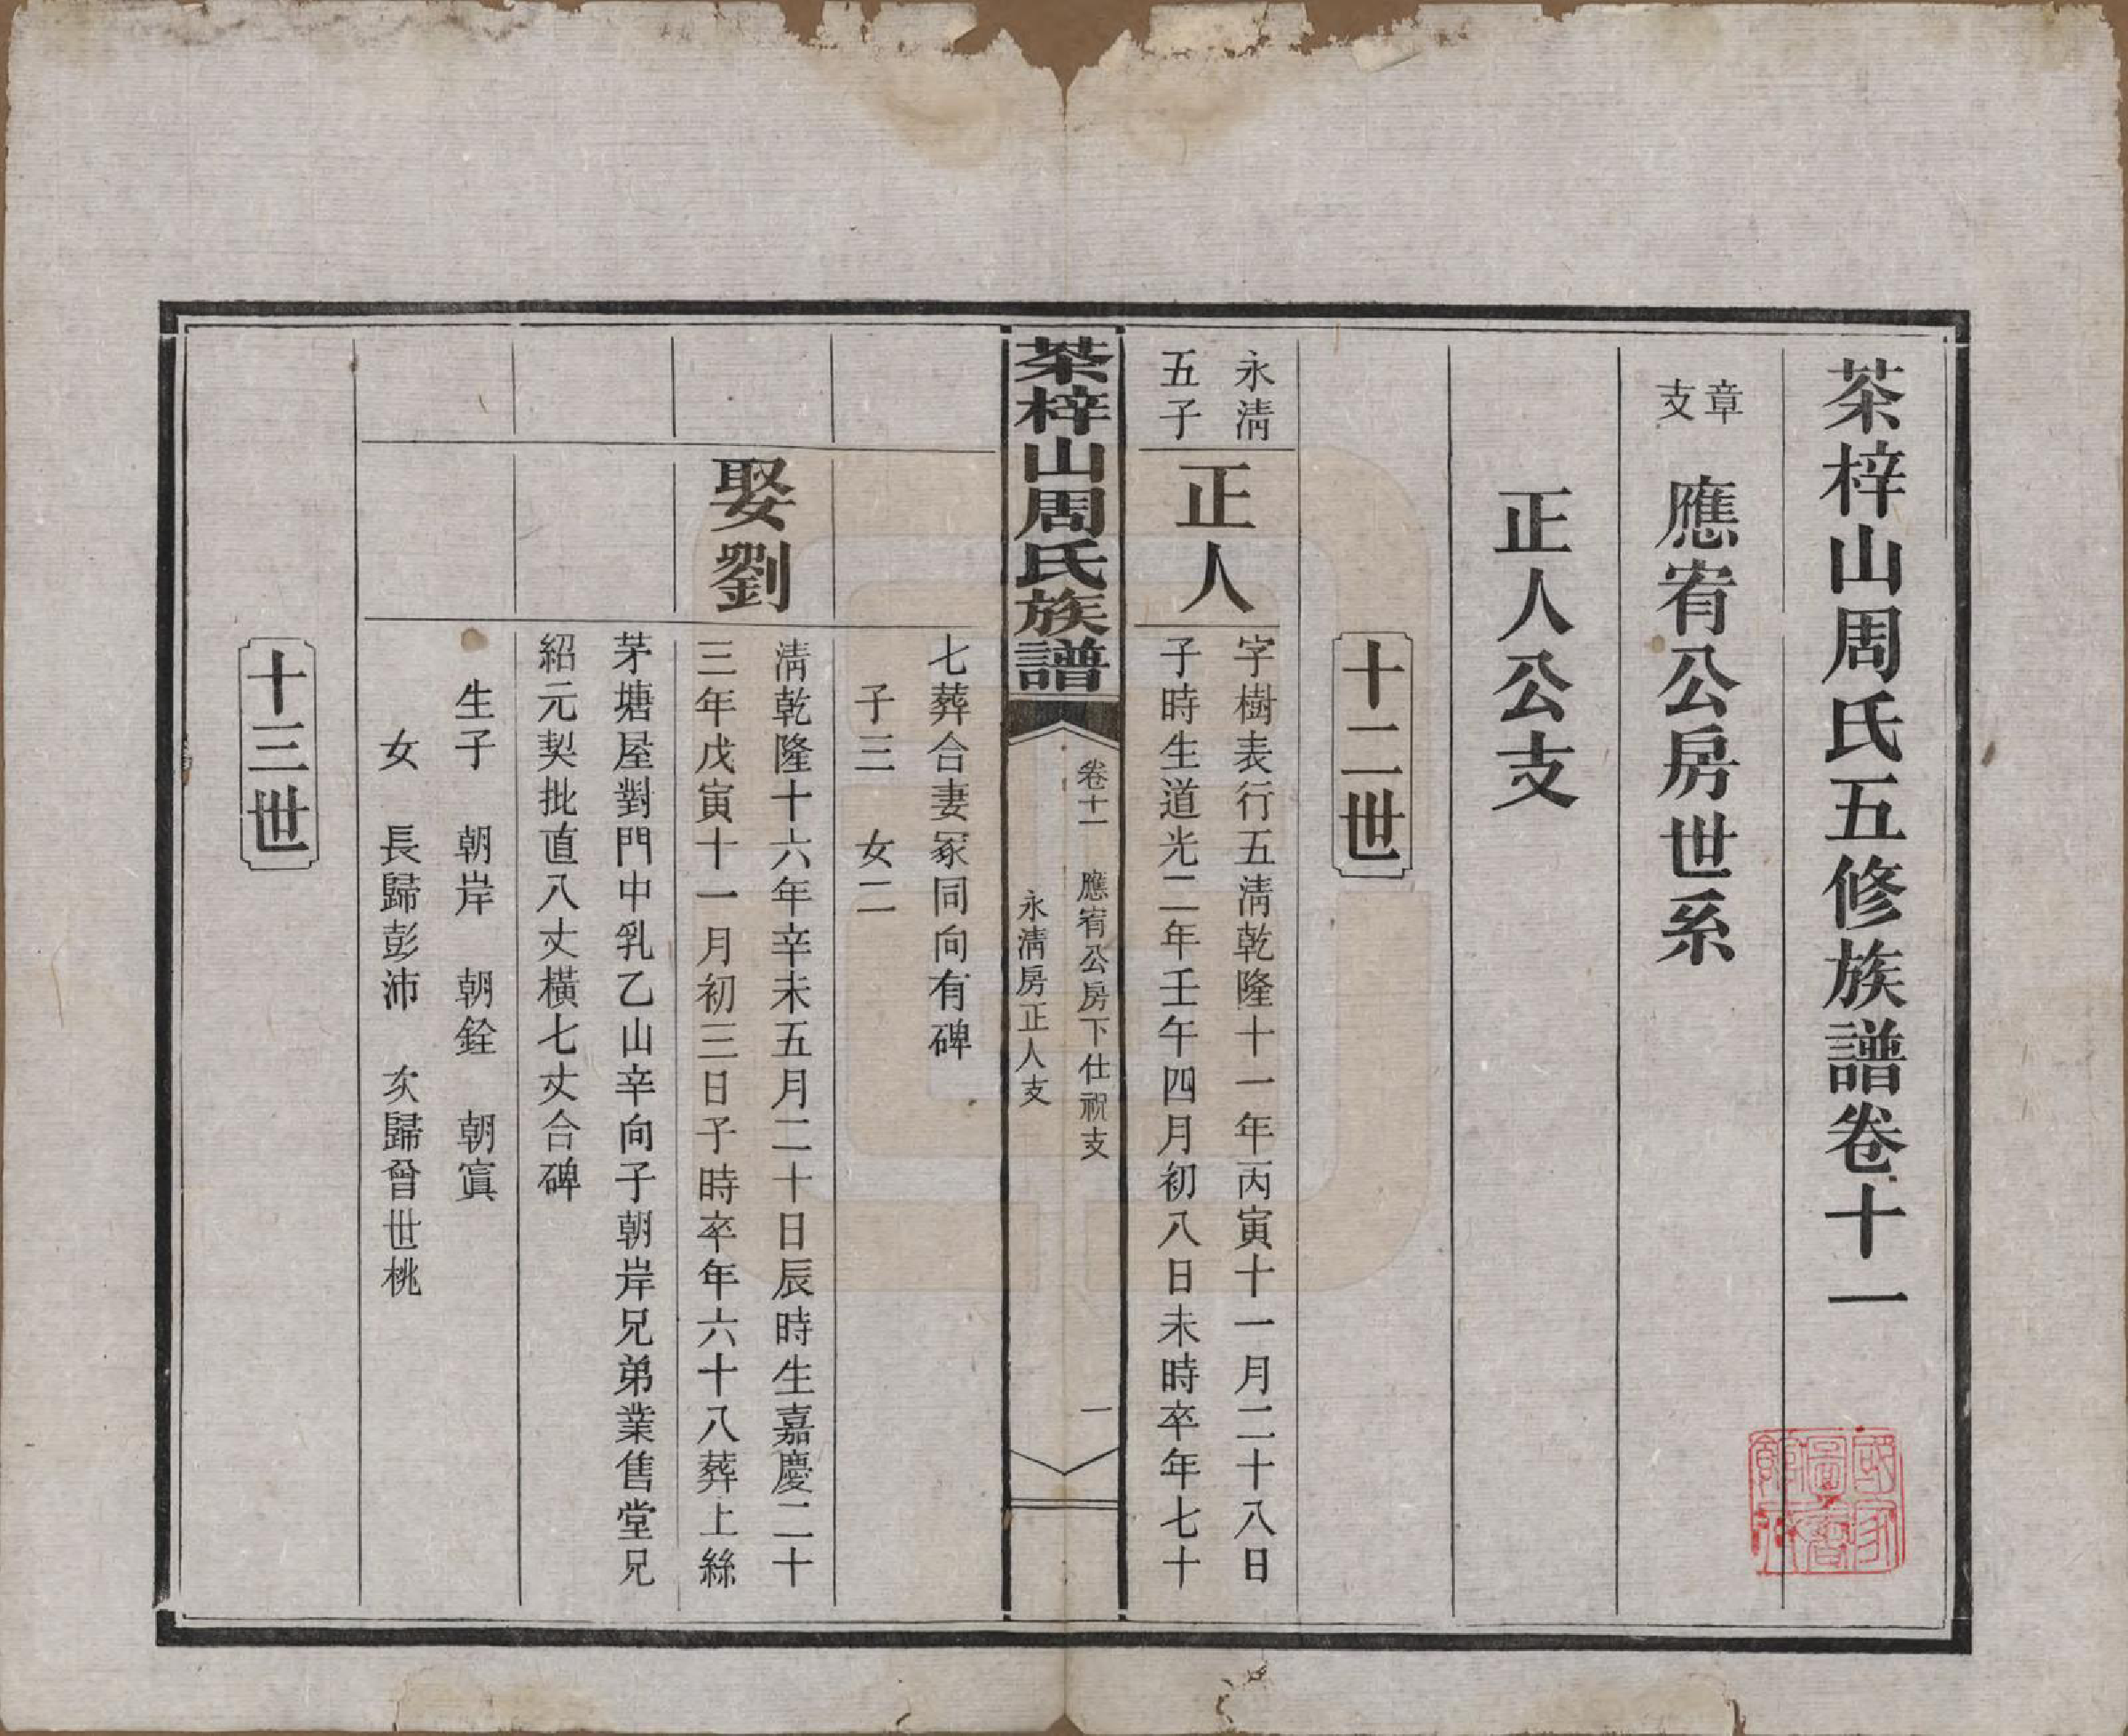 茶梓山周氏五修族譜卷十一
章支 應宥公房世系
正人公支
十二世
永清
五子
正人
字樹表行五清乾隆十一年丙寅十一月二十八日
子時生道光二年壬午四月初八日未時卒年七十
茶梓山周氏族譜
卷十一 應宥公房下仕祝支
永清房正人支
一
七葬合妻冢同向有碑
子三 女二
娶劉
清乾隆十六年辛未五月二十日辰時生嘉慶二十
三年戊寅十一月初三日子時卒年六十八葬上絲
茅塘屋對門中乳乙山辛向子朝岸兄弟業售堂兄
紹元契批直八丈橫七丈合碑
生子 朝岸 朝銓 朝寘
女 長歸彭沛 次歸曾世桃
十三世
國家圖書館藏